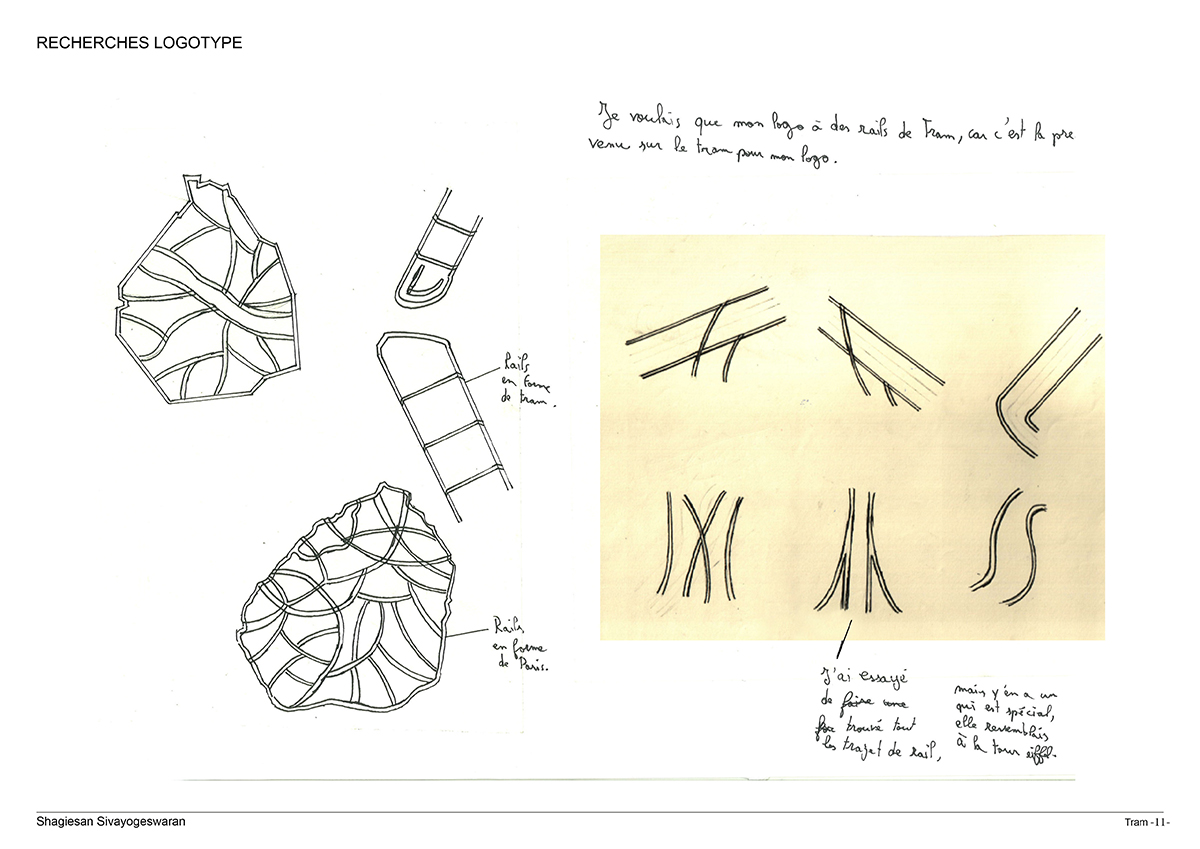 RECHERCHES LOGOTYPE
Je voulais que mon logo à des rails de Tram, car c'est la pre
venu sur le tram pour mon logo.
Rails
en forme
de tram.
Rails
en forme
de Paris.
J'ai essayé
de faire une
trouvé tout
les trajet de rail,
mais y'en a un
qui est spécial,
elle ressemblais
à la tour eiffel.
Shagiesan Sivayogeswaran
Tram -11-